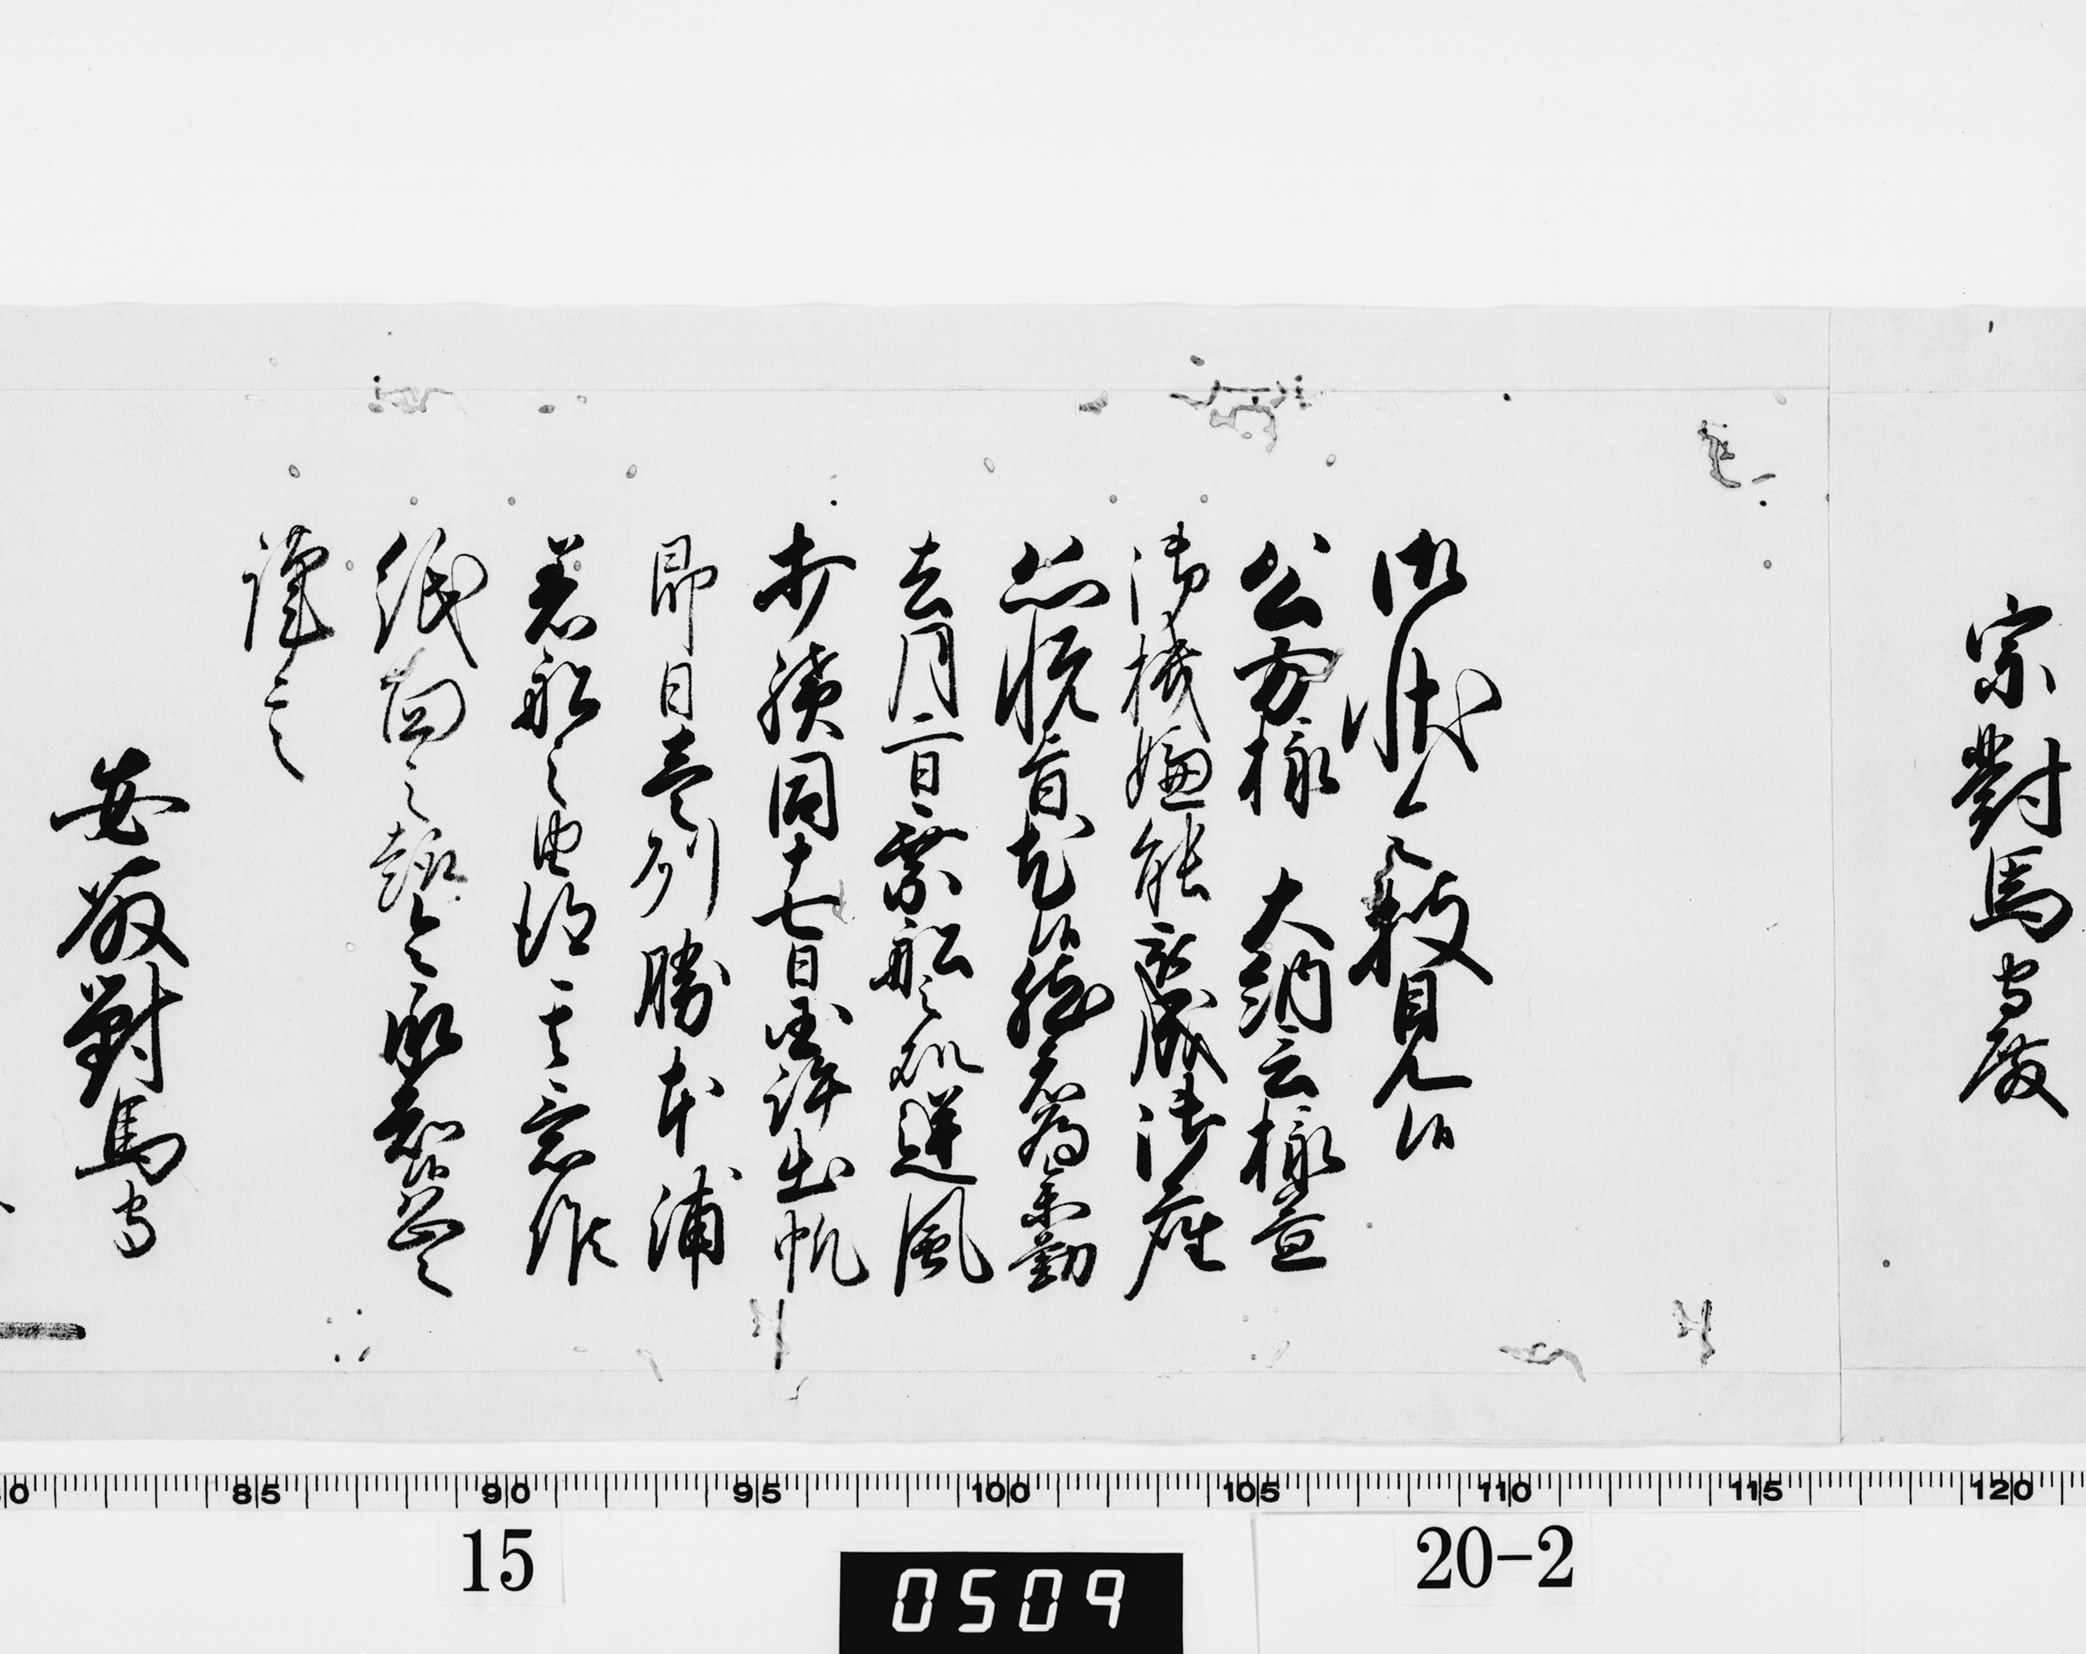 宗對馬守殿
御状令披見候
公方様　大納言様益
御機嫌能被成御座
恐悦旨尤候然者為参勤
去月二日乗船之処逆風
打續同十七日国許出帆
即日壱州勝本浦
着船之由得其意候
紙面之趣令承知候恐々
謹言
安藤對馬守
85 90 95 100 105 110 115 120
15
0509
20-2